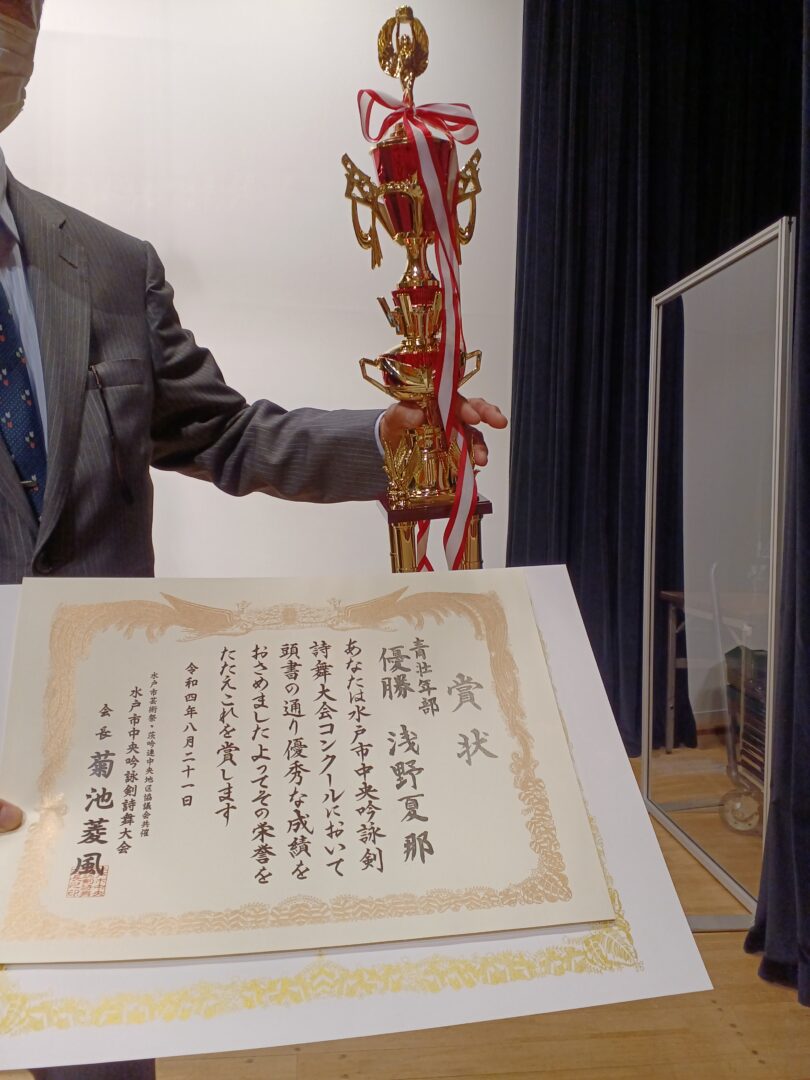 賞状
青壮年部
優勝 浅野夏那
あなたは水戸市中央吟詠剣
詩舞大会コンクールにおいて
頭書の通り優秀な成績を
おさめましたよってその栄誉を
たたえこれを賞します
令和四年八月二十一日
水戸市芸術祭・茨吟連中央地区協議会共催
水戸市中央吟詠剣詩舞大会
会長 菊池菱風